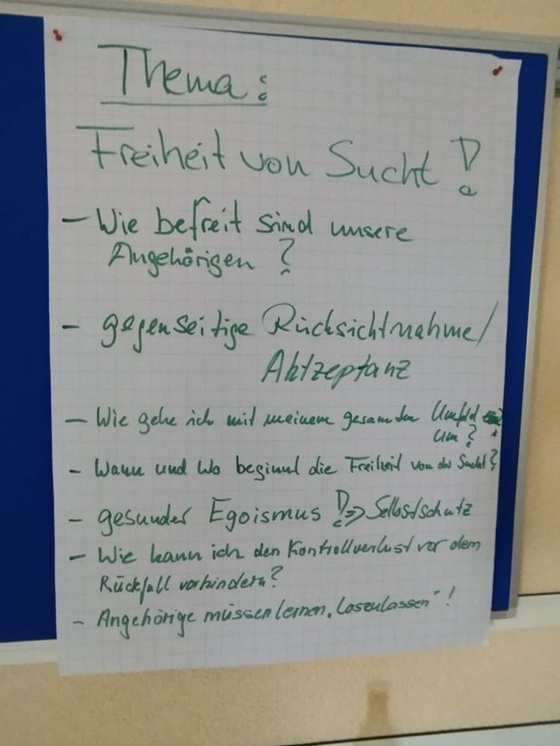 Thema:
Freiheit von Sucht!
- Wie befreit sind unsere
Angehörigen?
- gegenseitige Rücksichtnahme/
Aktzeptanz
- Wie gehe ich mit meinem gesamten Umfeld
um?
- Wann und Wo beginnt die Freiheit von der Sucht?
- gesunder Egoismus! => Selbstschutz
- Wie kann ich den Kontrollverlust vor dem
Rückfall verhindern?
- Angehörige müssen lernen „Loszulassen"!